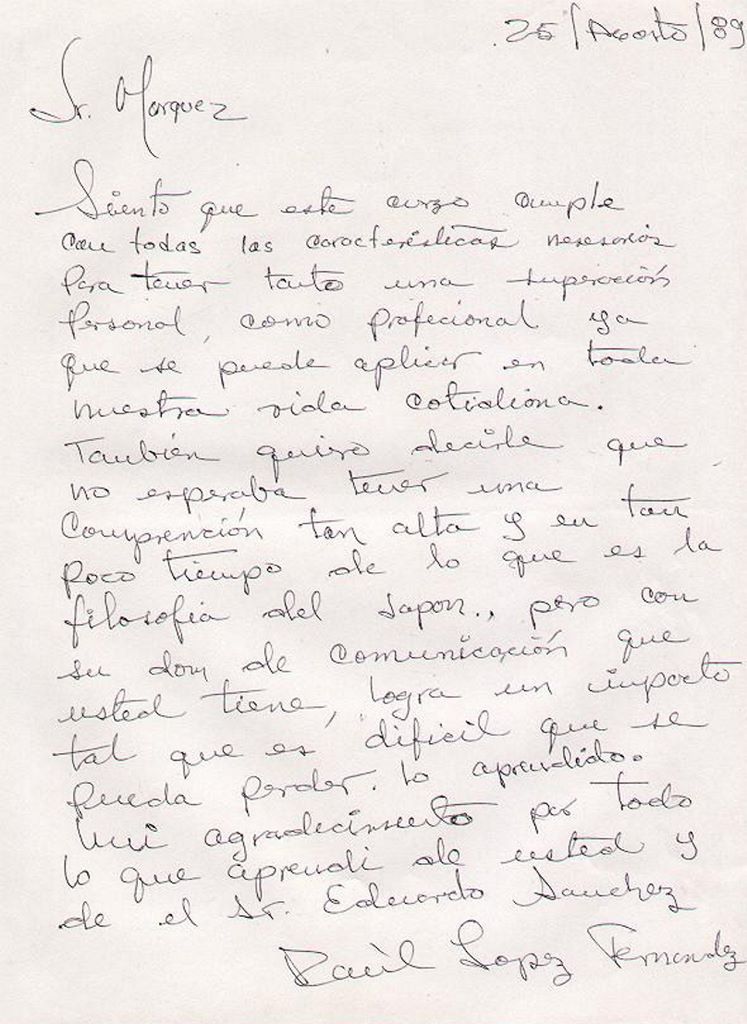 25/Agosto/89
Sr. Marquez
Siento que este curzo cumple
con todas las características nesesarias
Para tener tanto una superación
Personal, como profecional ya
que se puede aplicar en toda
nuestra vida cotidiana.
También quiero decirle que
no esperaba tener una
Comprención tan alta y en tan
poco tiempo de lo que es la
filosofia del Japon., pero con
su don de comunicación que
usted tiene, logra un impacto
tal que es dificil que se
pueda perder. lo aprendido.
Mi agradecimiento por todo
lo que aprendi de usted y
de el Sr. Eduardo Sanchez
Raúl Lopez Fernandez